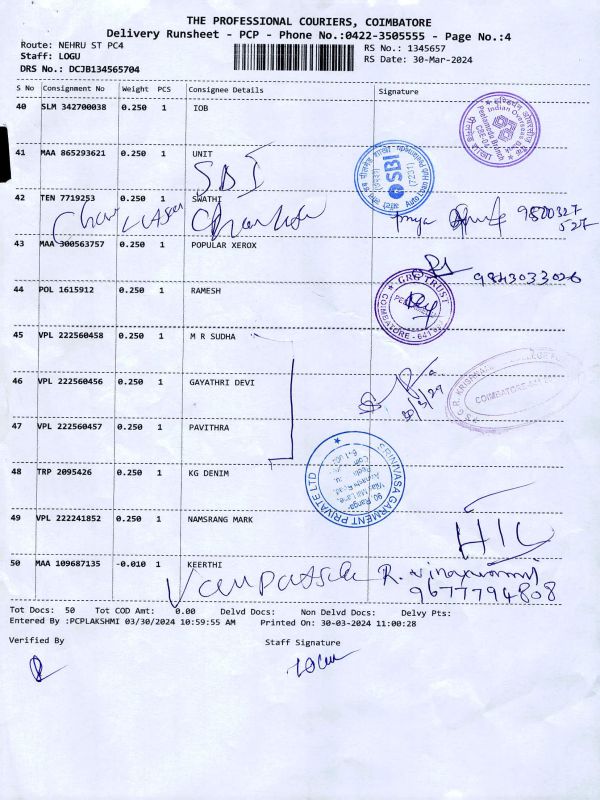 THE PROFESSIONAL COURIERS, COIMBATORE
Delivery Runsheet - PCP - Phone No.:0422-3505555 - Page No.:4
Route: NEHRU ST PC4
RS No.: 1345657
Staff: LOGU
RS Date: 30-Mar-2024
DRS No.: DCJB134565704
S No Consignment No Weight PCS Consignee Details Signature
40 SLM 342700038 0.250 1 IOB
Indian Overseas
41 MAA 865293621 0.250 1 UNIT
SBI
SBI
(7231)
42 TEN 7719253 0.250 1 SWATHI
43 MAA 300563757 0.250 1 POPULAR XEROX
9843033026
44 POL 1615912 0.250 1 RAMESH
GRG TRUST
COIMBATORE - 641
45 VPL 222560458 0.250 1 M R SUDHA
46 VPL 222560456 0.250 1 GAYATHRI DEVI
G.R. KRISHNA
COIMBATORE-641
47 VPL 222560457 0.250 1 PAVITHRA
48 TRP 2095426 0.250 1 KG DENIM
SRINIVASA GARMENT PRIVATE LTD
49 VPL 222241852 0.250 1 NAMSRANG MARK
50 MAA 109687135 -0.010 1 KEERTHI
9677794808
Tot Docs: 50 Tot COD Amt: 0.00 Delvd Docs: Non Delvd Docs: Delvy Pts:
Entered By :PCPLAKSHMI 03/30/2024 10:59:55 AM Printed On: 30-03-2024 11:00:28
Verified By Staff Signature